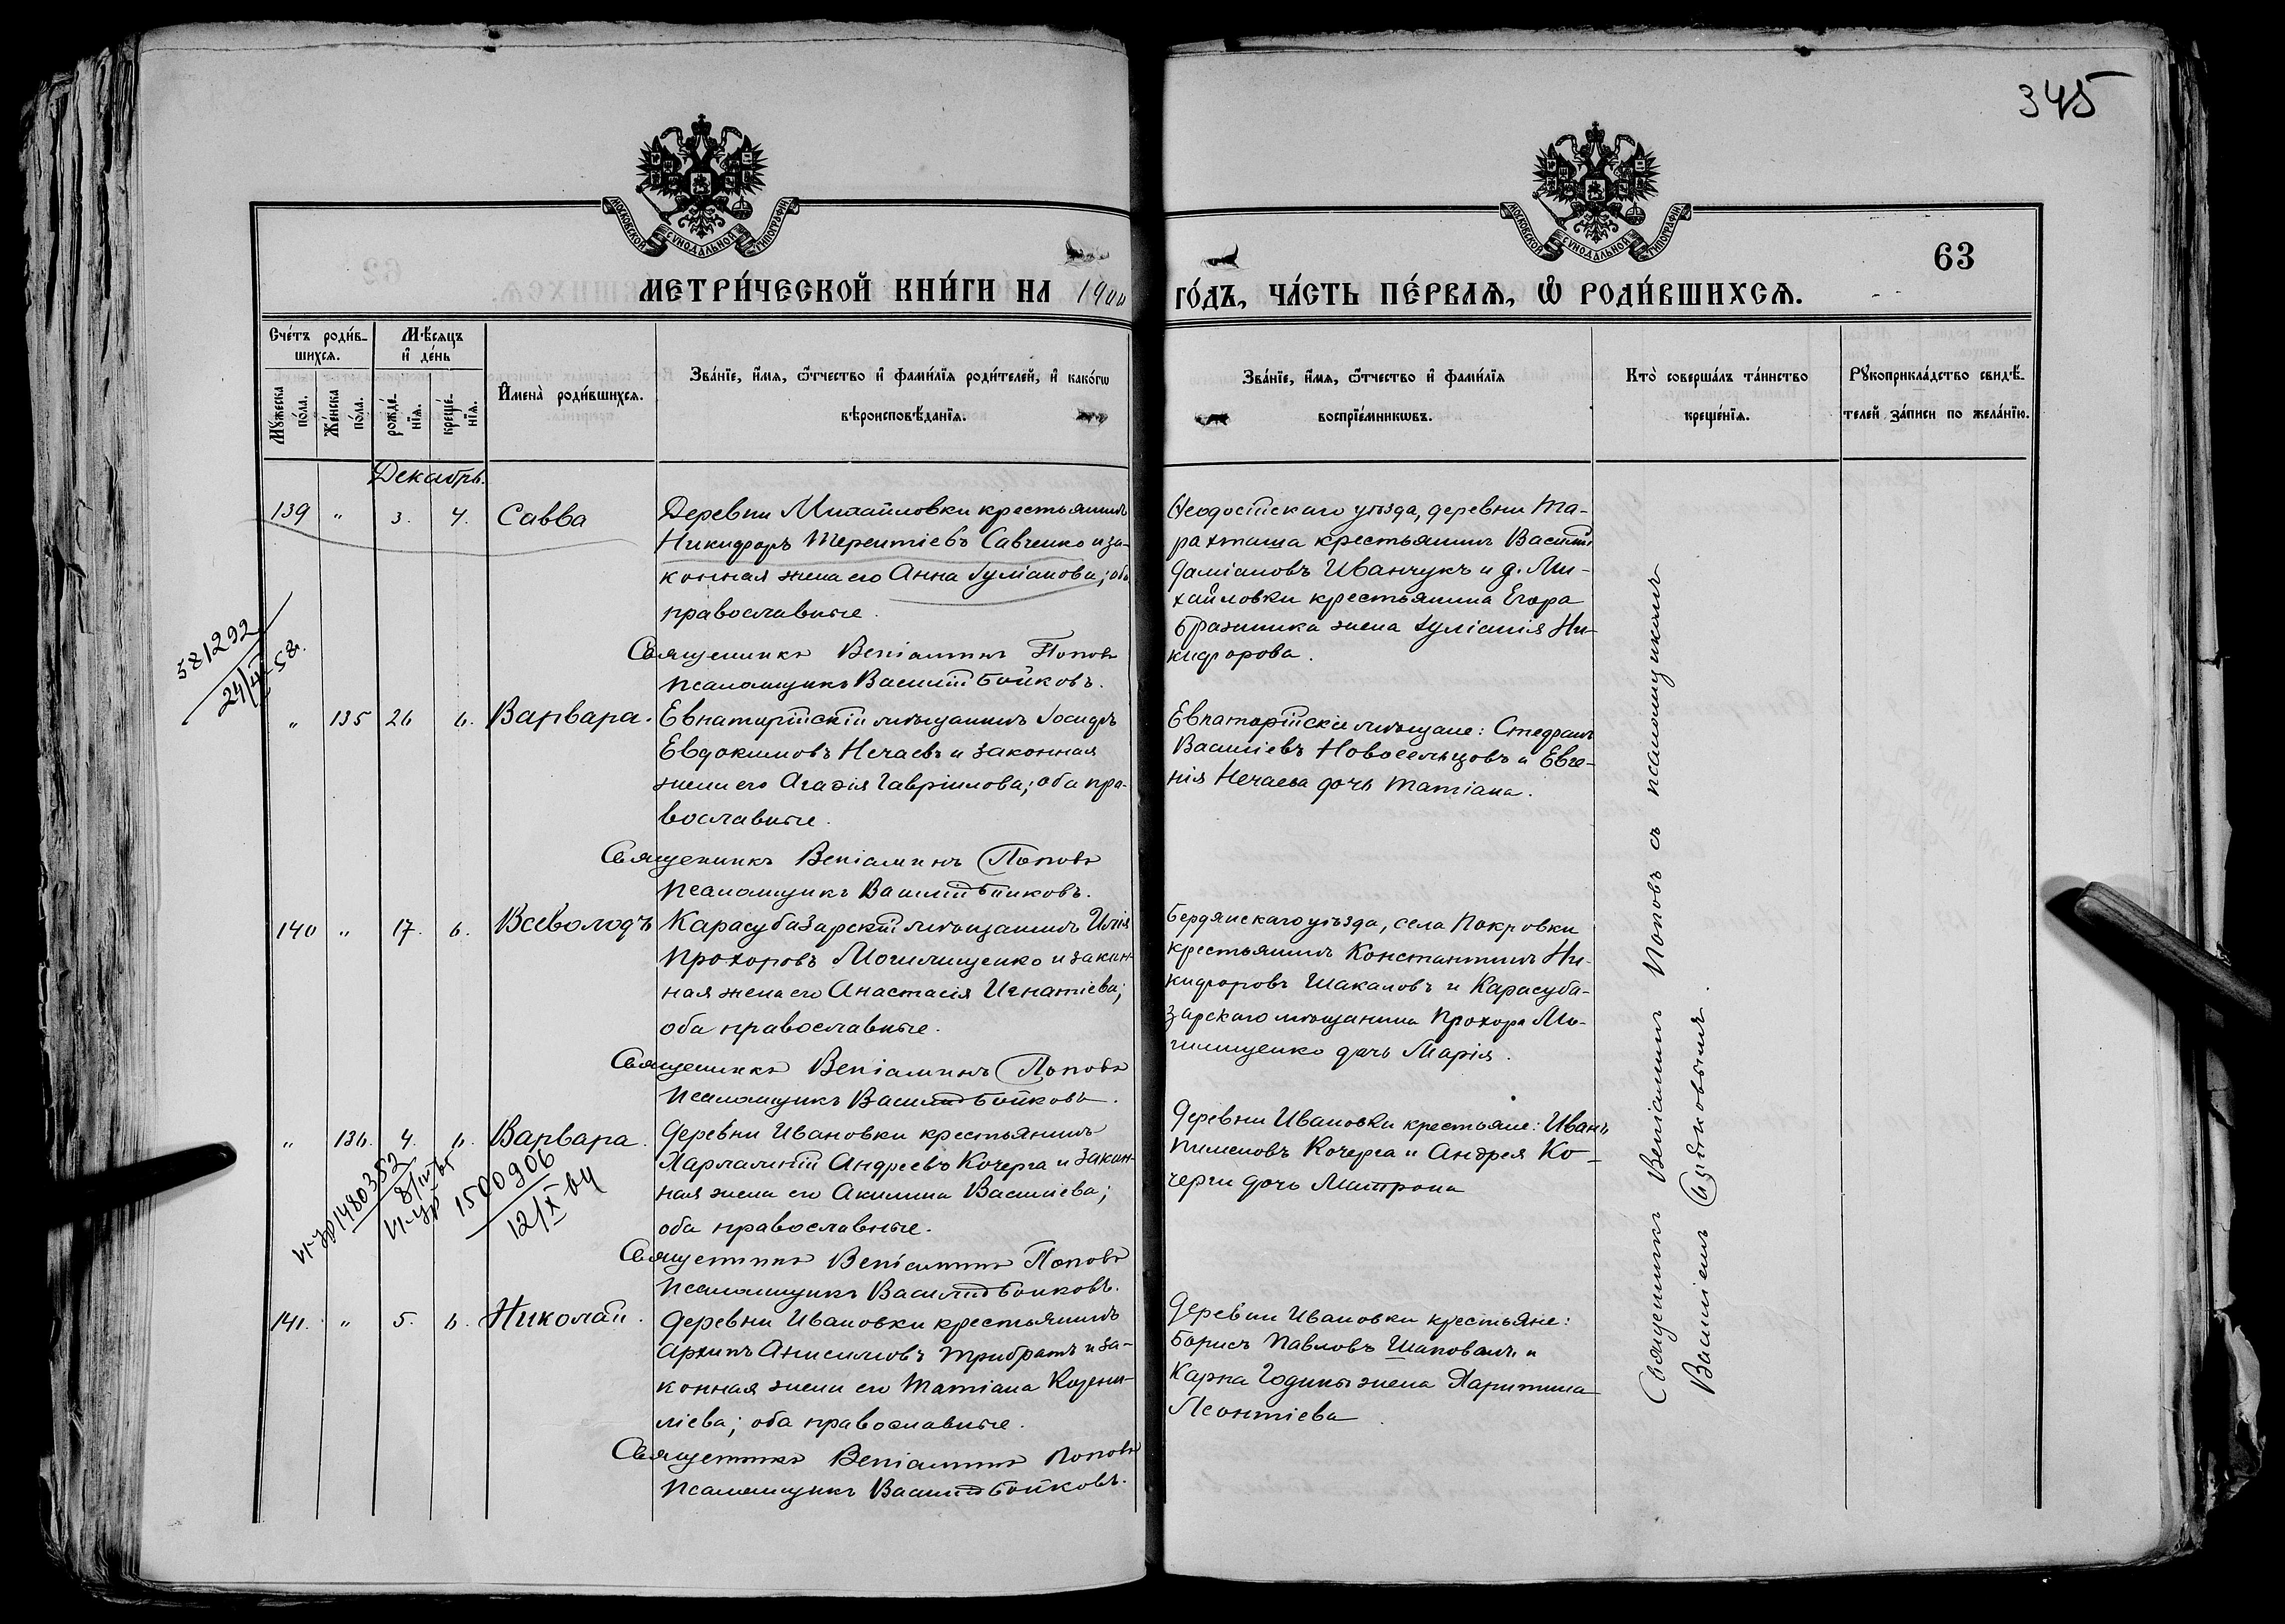 345
МОСКОВСКОЙ СѴНОДАЛЬНОЙ ТИПОГРАФІИ
МОСКОВСКОЙ СѴНОДАЛЬНОЙ ТИПОГРАФІИ
63
МЕТРИ́ЧЕСКОЙ КНИ́ГИ НА 1900 ГО́ДЪ, ЧА́СТЬ ПЕ́РВАѦ, Ѽ РОДИ́ВШИХСѦ.
Сче́тъ роди́в-
шихсѧ.
Мꙋ́жеска
по́ла.
Же́нска
по́ла.
Мѣ́сѧцъ
и҆ де́нь
рожде́-
нїѧ.
креще́-
нїѧ.
И҆мена̀ роди́вшихсѧ.
Зва́нїе, и҆́мѧ, ѻ҆́тчество и҆ фами́лїѧ роди́телей, и҆ како́гѡ
вѣроисповѣ́данїѧ.
Зва́нїе, и҆́мѧ, ѻ҆́тчество и҆ фами́лїѧ
воспрїе́мникѡвъ.
Кто̀ соверша́лъ та́инство
креще́нїѧ.
Рꙋкоприкла́дство свидѣ́-
телей за́писи по жела́нїю.
Декабрь.
139 " 3. 4. Савва
Деревни Михайловки крестьянинъ
Никифоръ Терентіевъ Савченко и за-
конная жена его Анна Іуліанова; оба
православные.
Священникъ Веніаминъ Поповъ
Псаломщикъ Василій Бойковъ.
Ѳеодосійскаго уѣзда, деревни Та-
рахташа крестьянинъ Василій
Даміановъ Иванчукъ и д. Ми-
хайловки крестьянина Егора
Бражника жена Іуліанія Ни-
кифорова.
581292
24/V-58.
" 135 26 6. Варвара.
Евпаторійскій мѣщанинъ Іосифъ
Евдокимовъ Нечаевъ и законная
жена его Агафія Гавріилова; оба пра-
вославные.
Священникъ Веніаминъ Поповъ
Псаломщикъ Василій Бойковъ.
Евпаторійскіе мѣщане: Стефанъ
Василіевъ Новосельцовъ и Евге-
нія Нечаева дочь Татіана.
140 " 17. 6. Всеволодъ
Карасубазарскій мѣщанинъ Илія
Прохоровъ Могилищенко и закон-
ная жена его Анастасія Игнатіева;
оба православные.
Священникъ Веніаминъ Поповъ
Псаломщикъ Василій Бойковъ.
Бердянскаго уѣзда, села Покровки
крестьянинъ Константинъ Ни-
кифоровъ Шакаловъ и Карасуба-
зарскаго мѣщанина Прохора Мо-
гилищенко дочь Марія.
" 136. 4. 6. Варвара.
Деревни Ивановки крестьянинъ
Харлампій Андреевъ Кочерга и закон-
ная жена его Акилина Василіева;
оба православные.
Священникъ Веніаминъ Поповъ
Псаломщикъ Василій Бойковъ.
Деревни Ивановки крестьяне: Иванъ
Пименовъ Кочерга и Андрея Ко-
черги дочь Матрона
1480352
1500906
12/X-64
141. " 5. 6. Николай.
Деревни Ивановки крестьянинъ
Архипъ Анисимовъ Трибратъ и за-
конная жена его Татіана Корни-
ліева; оба православные.
Священникъ Веніаминъ Поповъ
Псаломщикъ Василій Бойковъ.
Деревни Ивановки крестьяне:
Борисъ Павловъ Шаповалъ и
Карпа Годины жена Харитина
Леонтіева
Священникъ Веніаминъ Поповъ съ псаломщикомъ
Василіемъ Бойковымъ.